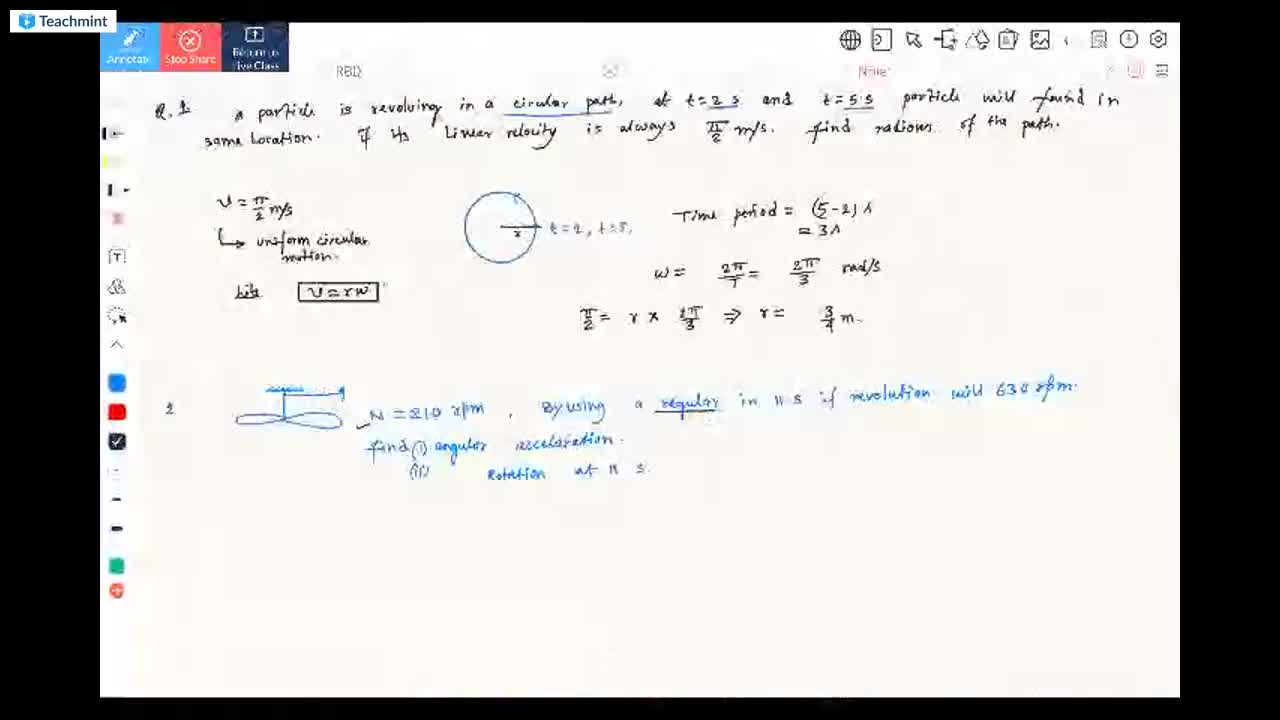 Teachmint
Annotate
Stop Share
Return to Live Class
RBD
Note
Q.1 a particle is revolving in a circular path, at t=2 s and t=5 s particle will found in
same location. if its linear velocity is always π/2 m/s. find radious of the path.
v = π/2 m/s
↳ uniform circular
motion.
v = rω
r t=2, t=5.
Time period = (5-2) s
= 3s
ω = 2π/T = 2π/3 rad/s
π/2 = r × 2π/3 ⇒ r = 3/4 m.
2
N = 210 rpm, By using a regular in 11 s if revolution will 630 rpm.
find (i) angular acceleration.
(ii) Rotation at 11 s.